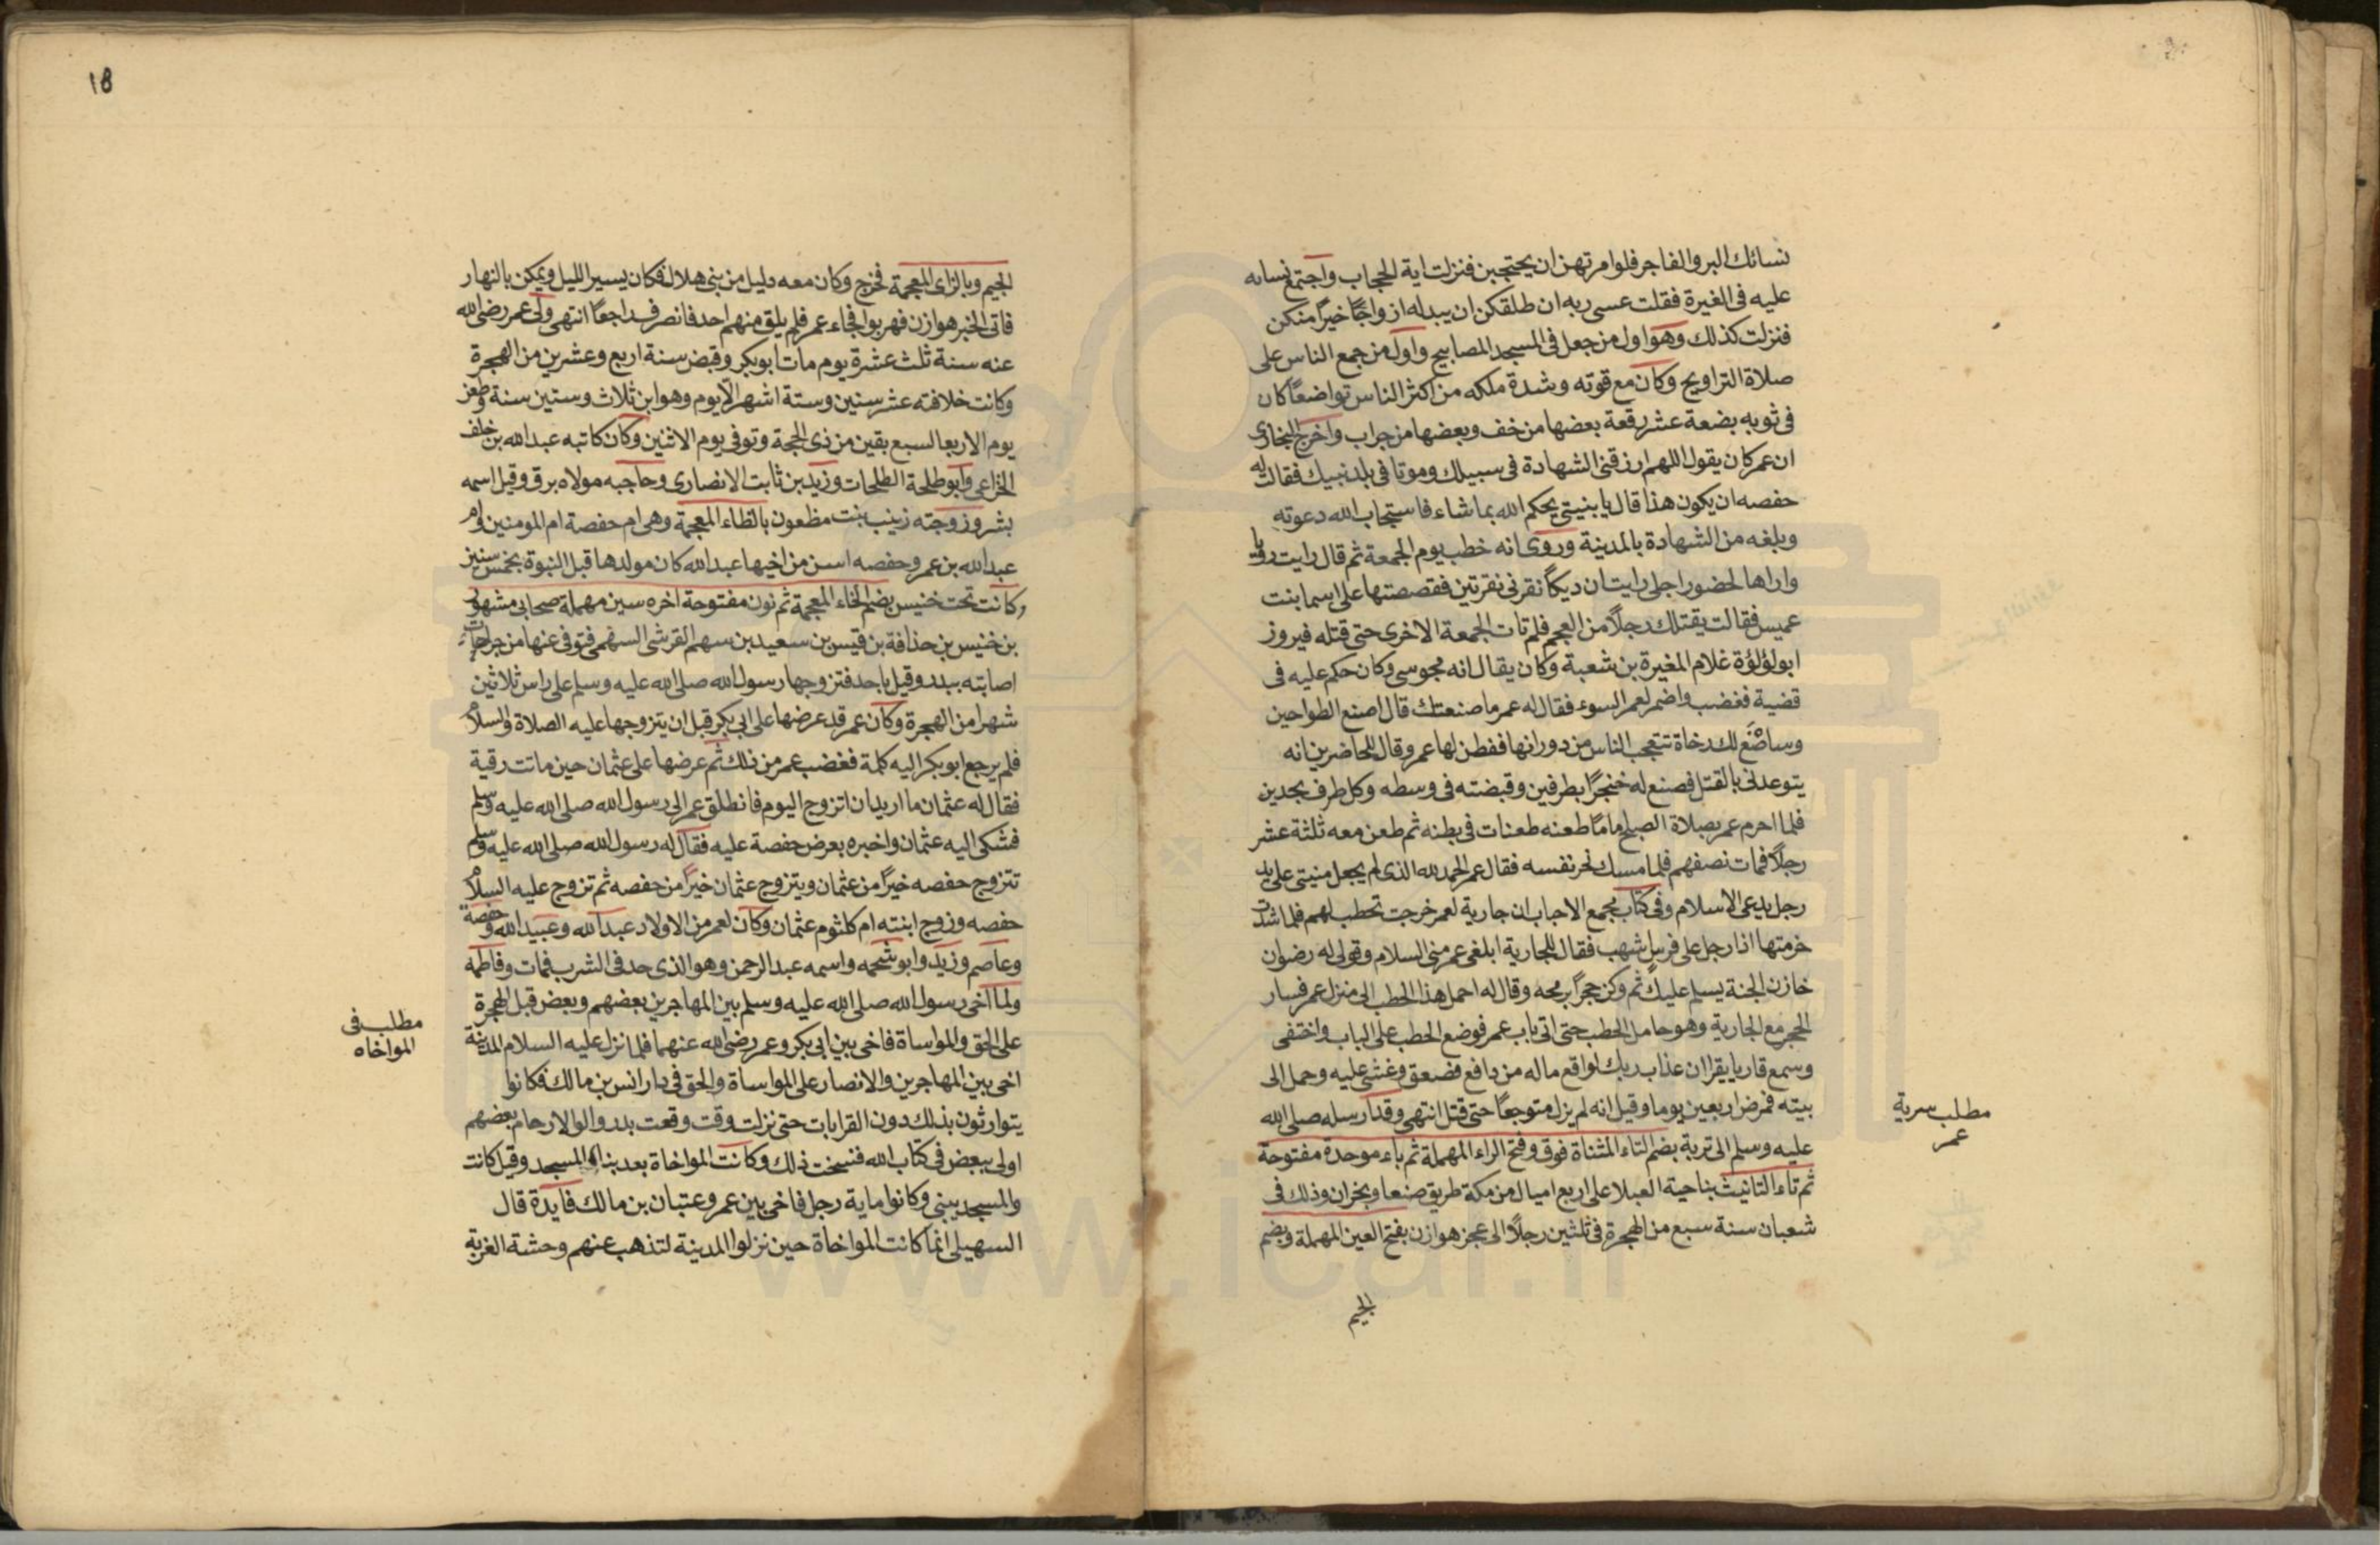 نسائك البر والفاجر فلو امرتهن ان يحتجبن فنزلت اية الحجاب واجتمع نساؤه
عليه في الغيرة فقلت عسى ربه ان طلقكن ان يبدله ازواجًا خيرًا منكن
فنزلت كذلك وهو اول من جعل في المسجد المصابيح واول من جمع الناس على
صلاة التراويح وكان مع قوته وشدة ملكه من اكثر الناس تواضعًا كان
في ثوبه بضعة عشر رقعة بعضها من خف وبعضها من جراب واخرج البخارى
ان عمر كان يقول اللهم ارزقني الشهادة في سبيلك وموتا في بلد نبيك فقالت له
حفصه ان يكون هذا قال يا بنيتي يحكم الله بما شاء فاستجاب الله دعوته
وبلغه من الشهادة بالمدينة وروى انه خطب يوم الجمعة ثم قال رايت رويا
واراها لحضور اجلى رايت ان ديكًا نقرني نقرتين فقصصتها على اسما بنت
عميس فقالت يقتلك رجلًا من العجم فلم تات الجمعة الاخرى حتى قتله فيروز
ابو لؤلؤة غلام المغيرة بن شعبة وكان يقال انه مجوسي وكان حكم عليه في
قضية فغضب واضمر لعمر السوء فقال له عمر ما صنعتك قال اصنع الطواحين
وساصنع لك رخاة تتعجب الناس من دورانها ففطن لها عمر وقال للحاضرين انه
يتوعدني بالقتل فصنع له خنجرًا بطرفين وقبضته في وسطه وكل طرف بحدين
فلما احرم عمر بصلاة الصبح اماما طعنه طعنات في بطنه ثم طعن معه ثلثة عشر
رجلًا فمات نصفهم فلما مسك نحر نفسه فقال عمر الحمد لله الذى لم يجعل منيتى على يد
رجل يدعى الاسلام وفي كتاب مجمع الاحباب ان جارية لعمر خرجت تحطب لهم فلما شدت
خرمتها اذا رجل على فرس اشهب فقال للجارية ابلغى عمر منى السلام وقولى له رضوان
خازن الجنة يسلم عليك ثم وكز حجرًا برمحه وقال له احمل هذا الحطب الى منزل عمر فسار
الحجر مع الجارية وهو حامل الحطب حتى اتى باب عمر فوضع الحطب على الباب واختفى
وسمع قاريا يقرا ان عذاب ربك لواقع ماله من دافع فصعق وغشى عليه وحمل الى
بيته فمرض اربعين يوما وقيل انه لم يزل متوجعًا حتى قتل انتهى وقد ارسله صلى الله
عليه وسلم الى تربة بضم التاء المثناة فوق وفتح الراء المهملة ثم باء موحدة مفتوحة
ثم تاء التانيث بناحية العبلا على اربع اميال من مكة طريق صنعا ونجران وذلك في
شعبان سنة سبع من الهجرة في ثلثين رجلًا الى عجز هوازن بفتح العين المهملة وبضم
الجيم
مطلب سرية
عمر
18
الجيم وبالزاى المعجمة فخرج وكان معه دليل من بنى هلال فكان يسير الليل ويمكن بالنهار
فاتى الخبر هوازن فهربوا فجاء عمر فلم يلق منهم احد فانصرف راجعًا انتهى ولى عمر رضى الله
عنه سنة ثلث عشرة يوم مات ابو بكر وقبض سنة اربع وعشرين من الهجرة
وكانت خلافته عشر سنين وستة اشهر الا يوم وهو ابن ثلاث وستين سنة وطعن
يوم الاربعا لسبع بقين من ذى الحجة وتوفى يوم الاثنين وكان كاتبه عبد الله بن خلف
الخزاعى وابو طلحة الطلحات وزيد بن ثابت الانصارى وحاجبه مولاه برق وقيل اسمه
بشر وزوجته زينب بنت مظعون بالظاء المعجمة وهى ام حفصة ام المومنين وام
عبد الله بن عمر وحفصه اسن من اخيها عبد الله كان مولدها قبل النبوة بخمس سنين
وكانت تحت خنيس بضم الخاء المعجمة ثم نون مفتوحة اخره سين مهملة صحابى مشهور
بن خنيس بن حذافة بن قيس بن سعيد بن سهم القرشى السهمى فتوفى عنها من جراحات
اصابته ببدر وقيل باحد فتزوجها رسول الله صلى الله عليه وسلم على راس ثلاثين
شهرا من الهجرة وكان عمر قد عرضها على ابى بكر قبل ان يتزوجها عليه الصلاة والسلام
فلم يرجع ابو بكر اليه كلمة فغضب عمر من ذلك ثم عرضها على عثمان حين ماتت رقية
فقال له عثمان ما اريد ان اتزوج اليوم فانطلق عمر الى رسول الله صلى الله عليه وسلم
فشكى اليه عثمان واخبره بعرض حفصة عليه فقال له رسول الله صلى الله عليه وسلم
تتزوج حفصه خيرًا من عثمان ويتزوج عثمان خيرًا من حفصه ثم تزوج عليه السلام
حفصه وزوج ابنته ام كلثوم عثمان وكان لعمر من الاولاد عبد الله وعبيد الله وحفصة
وعاصم وزيد وابو شحمه واسمه عبد الرحمن وهو الذى حد في الشرب فمات وفاطمه
ولما آخى رسول الله صلى الله عليه وسلم بين المهاجرين بعضهم وبعض قبل الهجرة
على الحق والمواساة فاخى بين ابى بكر وعمر رضى الله عنهما فلما نزل عليه السلام المدينة
اخى بين المهاجرين والانصار على المواساة والحق في دار انس بن مالك فكانوا
يتوارثون بذلك دون القرابات حتى نزلت وقت وقعت بدر والوا الارحام بعضهم
اولى ببعض في كتاب الله فنسخت ذلك وكانت المواخاة بعد بناء المسجد وقيل كانت
والمسجد يبنى وكانوا ماية رجل فاخى بين عمر وعتبان بن مالك فايدة قال
السهيلى انما كانت المواخاة حين نزلوا المدينة لتذهب عنهم وحشة الغربة
مطلب في
المواخاه